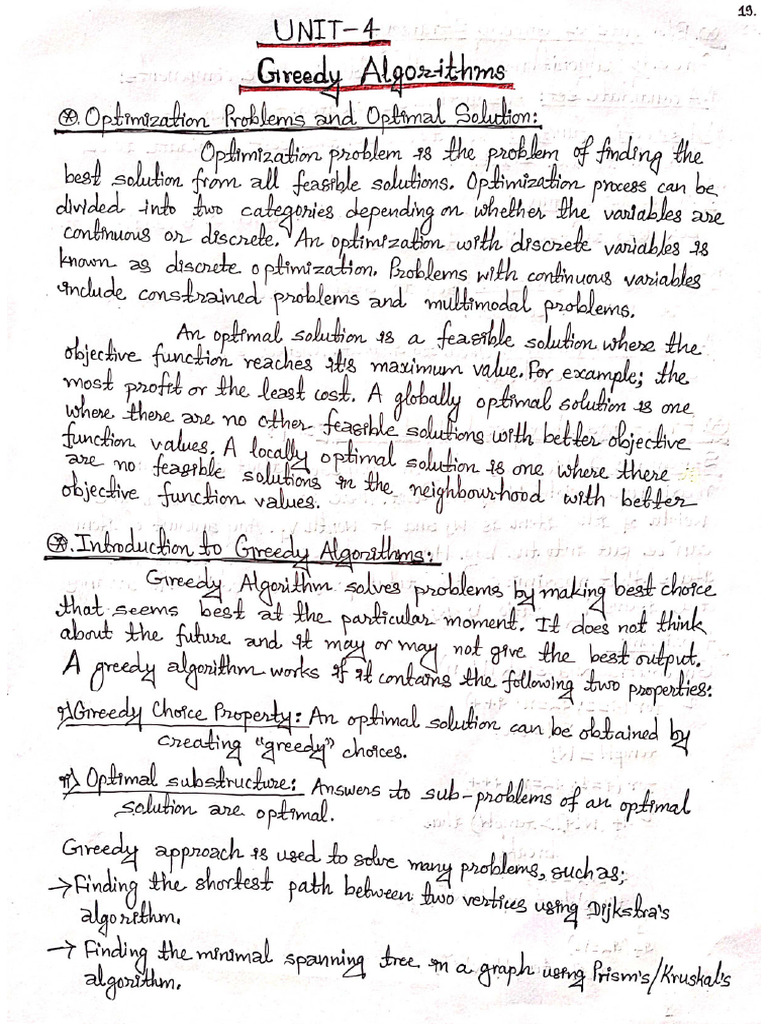 19.
UNIT-4
Greedy Algorithms
⊛. Optimization Problems and Optimal Solution:
Optimization problem is the problem of finding the
best solution from all feasible solutions. Optimization process can be
divided into two categories depending on whether the variables are
continuous or discrete. An optimization with discrete variables is
known as discrete optimization. Problems with continuous variables
include constrained problems and multimodal problems.
An optimal solution is a feasible solution where the
objective function reaches it's maximum value. For example; the
most profit or the least cost. A globally optimal solution is one
where there are no other feasible solutions with better objective
function values. A locally optimal solution is one where there
are no feasible solutions in the neighbourhood with better
objective function values.
⊛. Introduction to Greedy Algorithms:
Greedy Algorithm solves problems by making best choice
that seems best at the particular moment. It does not think
about the future and it may or may not give the best output.
A greedy algorithm works if it contains the following two properties:
i) Greedy Choice Property: An optimal solution can be obtained by
creating "greedy" choices.
ii) Optimal substructure: Answers to sub-problems of an optimal
solution are optimal.
Greedy approach is used to solve many problems, such as;
→ Finding the shortest path between two vertices using Dijkstra's
algorithm.
→ Finding the minimal spanning tree in a graph using Prism's/Kruskal's
algorithm.